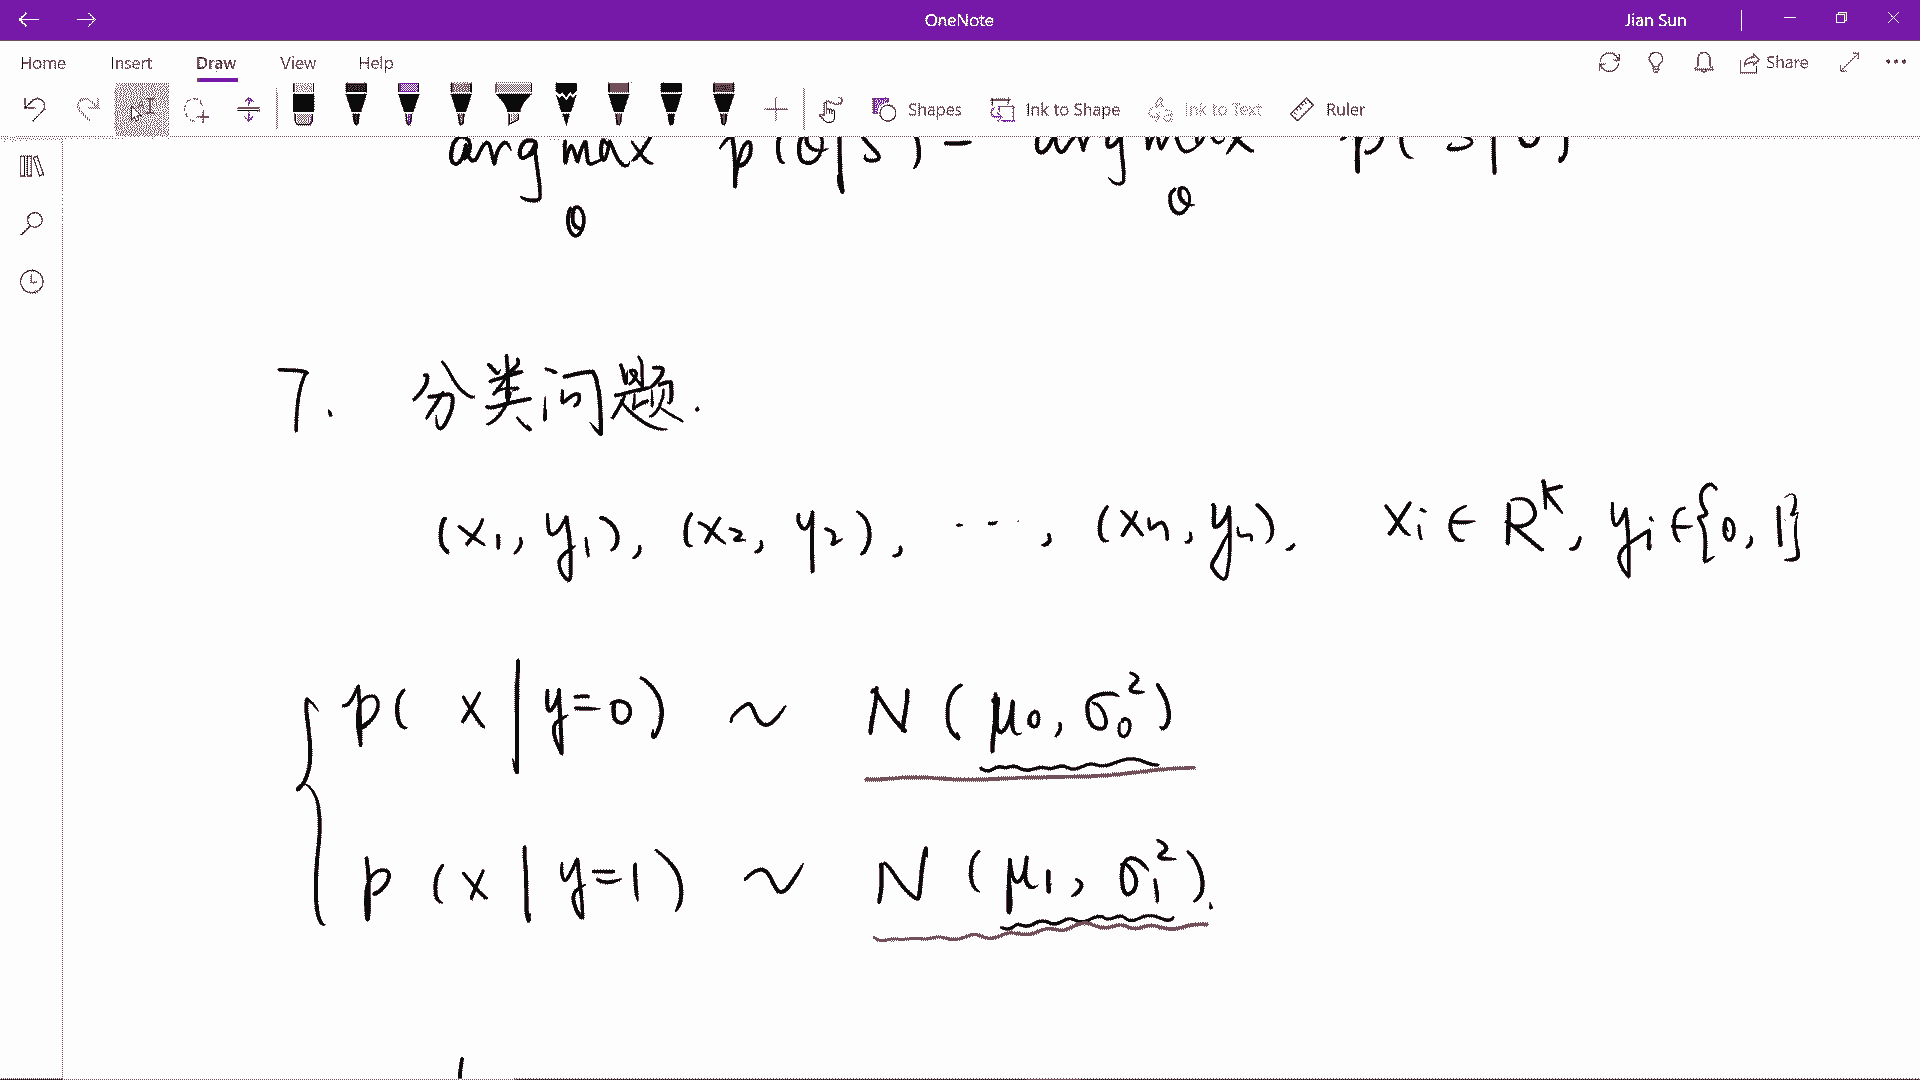 OneNote
Jian Sun
Home Insert Draw View Help
Share
Shapes Ink to Shape Ink to Text Ruler
arg max p(θ|s) = arg max p(s|θ)
θ θ
7. 分类问题.
(x₁, y₁), (x₂, y₂), ..., (xₙ, yₙ). xᵢ ∈ Rᴷ, yᵢ ∈ {0, 1}
p( x | y=0) ~ N(μ₀, σ₀²)
p (x | y=1) ~ N(μ₁, σ₁²).